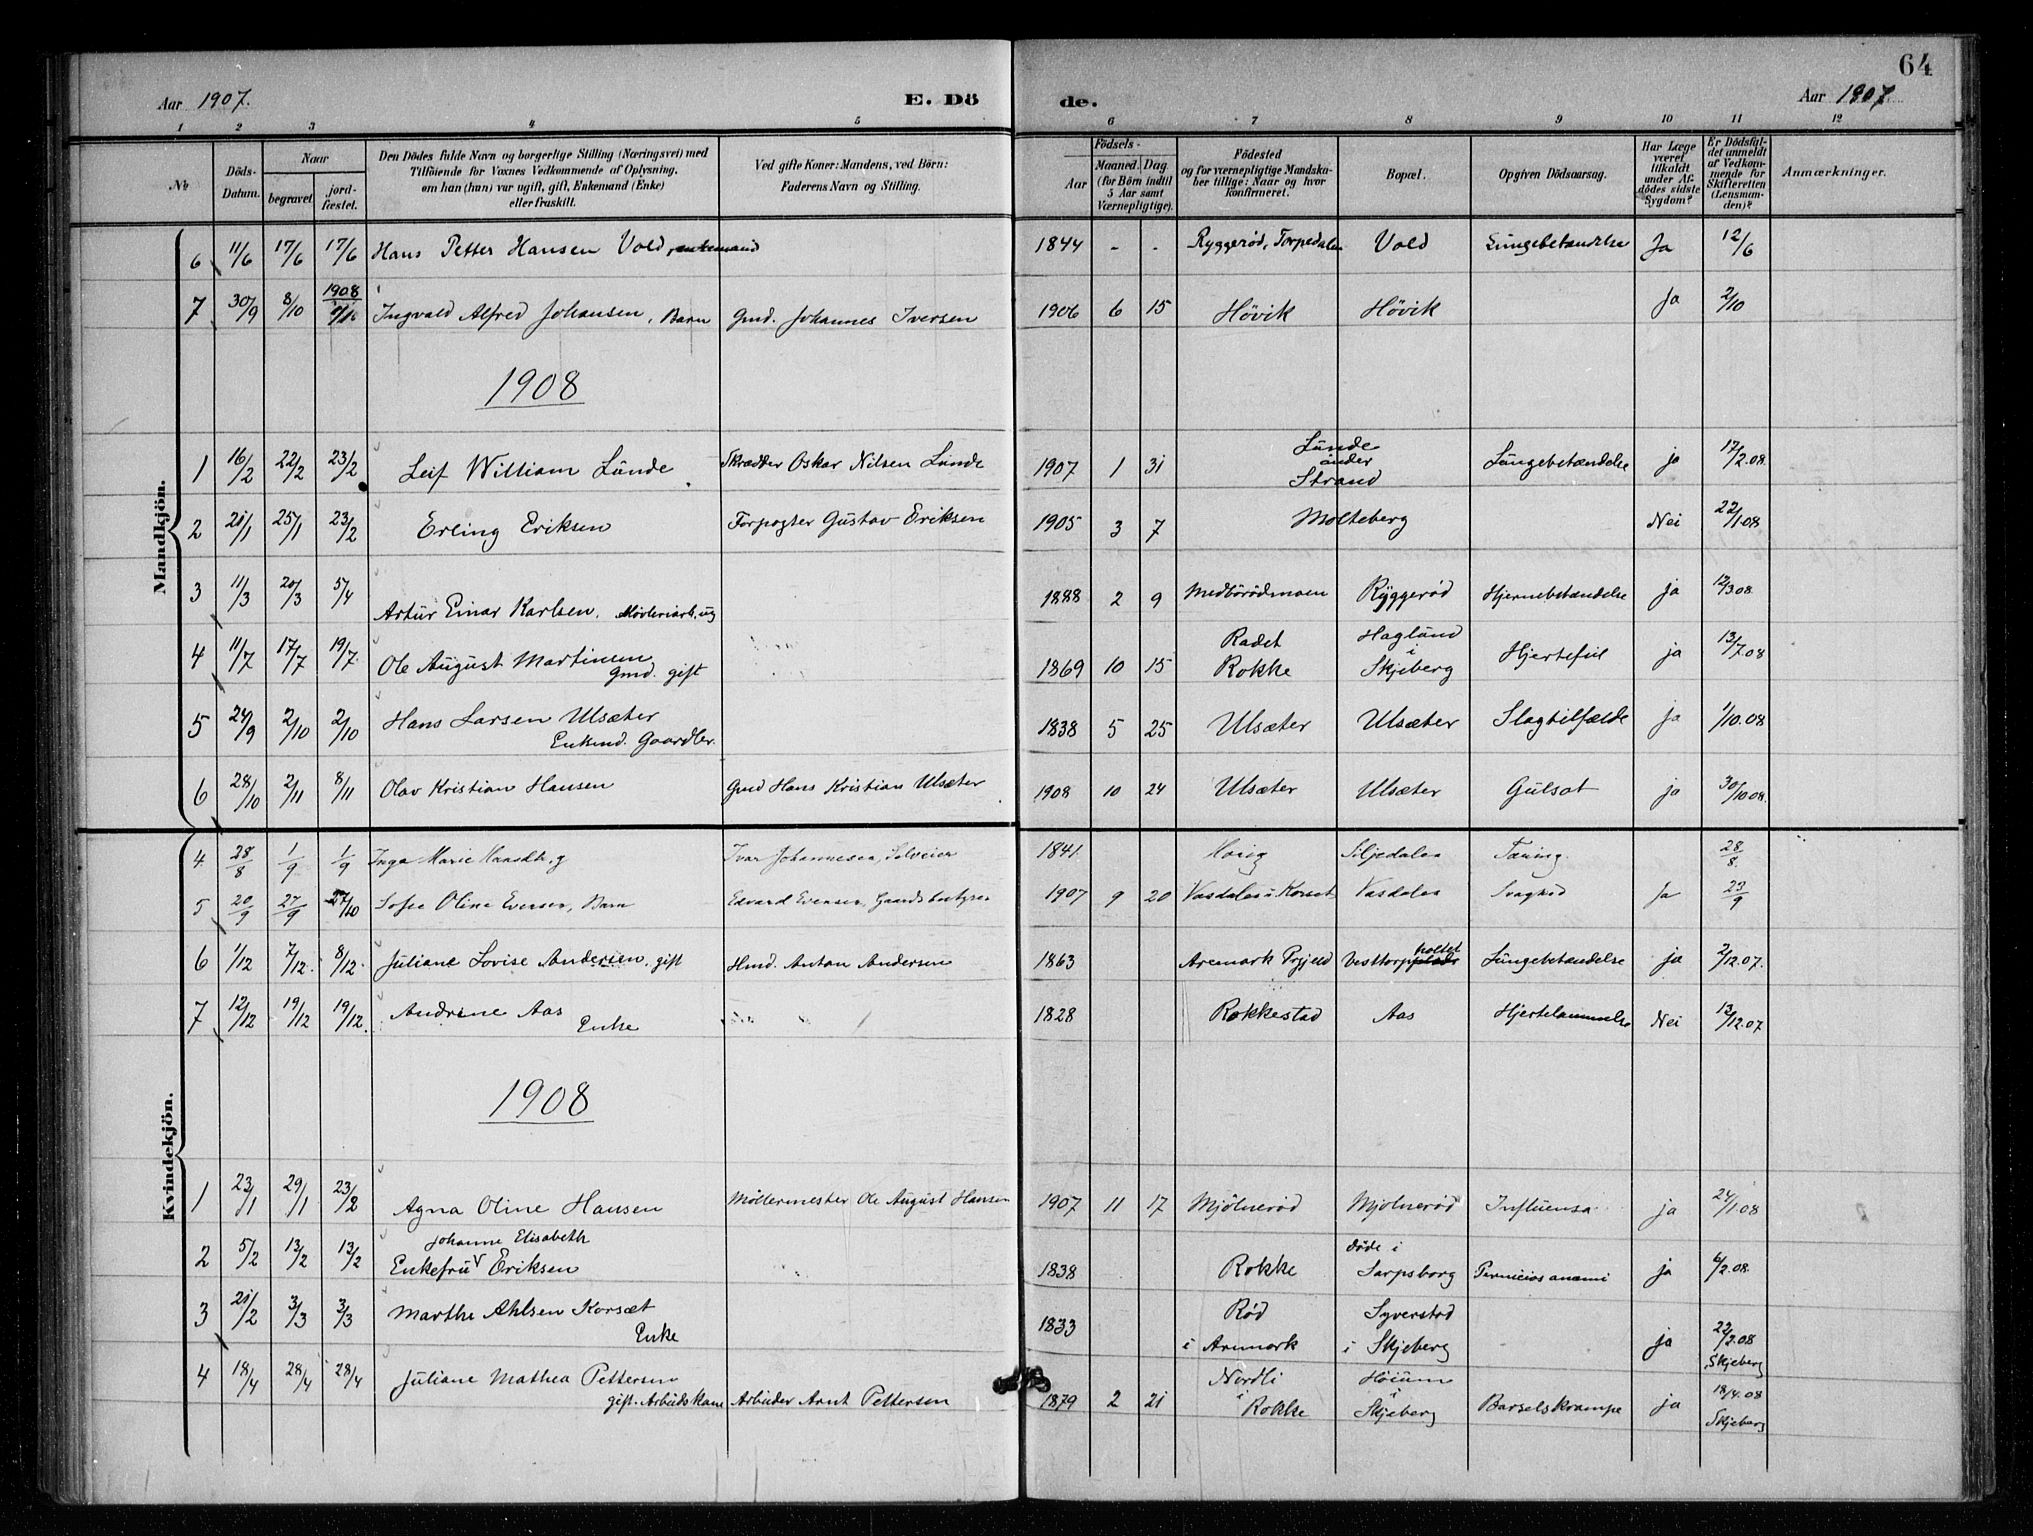 64
Aar 1907.
E. Dö
de.
Aar 1907
1 2 3 4 5 6 7 8 9 10 11 12
No
Döds-Datum.
Naar
begravet
jord-fæstet.
Den Dödes fulde Navn og borgerlige Stilling (Næringsvei) med
Tilföiende for Voxnes Vedkommende af Oplysning,
om han (hun) var ugift, gift, Enkemand (Enke)
eller fraskilt.
Ved gifte Koner: Mandens, ved Börn:
Faderens Navn og Stilling.
Födsels-
Aar
Maaned. Dag
(for Börn indtil
5 Aar samt
Værnepligtige).
Födested
og for værnepligtige Mandska-
ber tillige: Naar og hvor
konfirmeret.
Bopæl.
Opgiven Dödsaarsag.
Har Læge
været
tilkaldt
under Af-
dödes sidste
Sygdom?
Er Dödsfal-
det anmeldt
af Vedkom-
mende for
Skifteretten
(Lensman-
den)?
Anmærkninger.
Mandkjön.
6 11/6 17/6 17/6 Hans Petter Hansen Vold, enkemand 1844 - - Ryggerød, Torpedalen Vold Lungebetændelse Ja 12/6
7 30/9 8/10 1908 Ingvald Alfred Johansen, Barn Gmd. Johannes Iversen 1906 6 15 Høvik Høvik Ja 2/10
1908
1 16/2 22/2 23/2 Leif William Lunde Skrædder Oskar Nilsen Lunde 1907 1 31 Lunde under Strand Lungebetændelse ja 17/2.08
2 21/1 25/1 23/2 Erling Eriksen Forpagter Gustav Eriksen 1905 3 7 Molteberg Nei 22/1.08
3 11/3 20/3 5/4 Artur Einar Karlsen, ug 1888 2 9 Medbörödmoen Ryggerød Hjernebetændelse ja 12/3.08
4 11/7 17/7 19/7 Ole August Martinsen Gmd. gift 1869 10 15 Radet Rokke Haglund i Skjeberg Hjertefeil ja 13/7.08
5 24/9 2/10 2/10 Hans Larsen Ulsæter Enkmd. Gaardbr. 1838 5 25 Ulsæter Ulsæter Slagtilfælde ja 1/10.08
6 28/10 2/11 8/11 Olav Kristian Hansen Gmd Hans Kristian Ulsæter 1908 10 24 Ulsæter Ulsæter Gulsot ja 30/10.08.
Kvindekjön.
4 28/8 1/9 1/9 Inga Marie Ivar Johannesen, 1841. Siljedalen Tæring. 28/8.
5 20/9 27/9 27/10 Sofie Oline Evensen, Barn Edvard Evensen, Gaardsbestyrer 1907 9 20 Vasdalen u. Korset Vasdalen Svaghed Ja 23/9
6 1/12 7/12. 8/12. Juliane Lovise Andersen, gift Hmd. Anton Andersen 1863 Aremark Prgjeld Vesttorpholtet Lungebetændelse ja 2/12.07.
7 12/12 19/12 19/12. Andrine Aas Enke 1828 Rokkestad Aas Hjertelammelse Nei 13/12.07
1908
1 23/1 29/1 23/2 Agna Oline Hansen Møllermester Ole August Hansen 1907 11 17 Mjölnerød Mjölnerød Influensa ja 24/1.08
2 5/2 13/2 13/2 Enkefru Johanne Elisabeth Eriksen 1838 Rokke døde i Sarpsborg Perniciøs anæmi ja 6/2.08.
3 21/2 3/3 3/3 Marthe Ahlsen Korsæt Enke 1833 Rød i Aremark Syverstad i Skjeberg ja 22/2.08 Skjeberg
4 18/4 28/4 28/4 Juliane Mathea Pettersen gift. Arbeidskone Arbeider Arnt Pettersen 1879 2 21 Nordli i Rokke Høium i Skjeberg Barselskrampe ja 18/4.08 Skjeberg